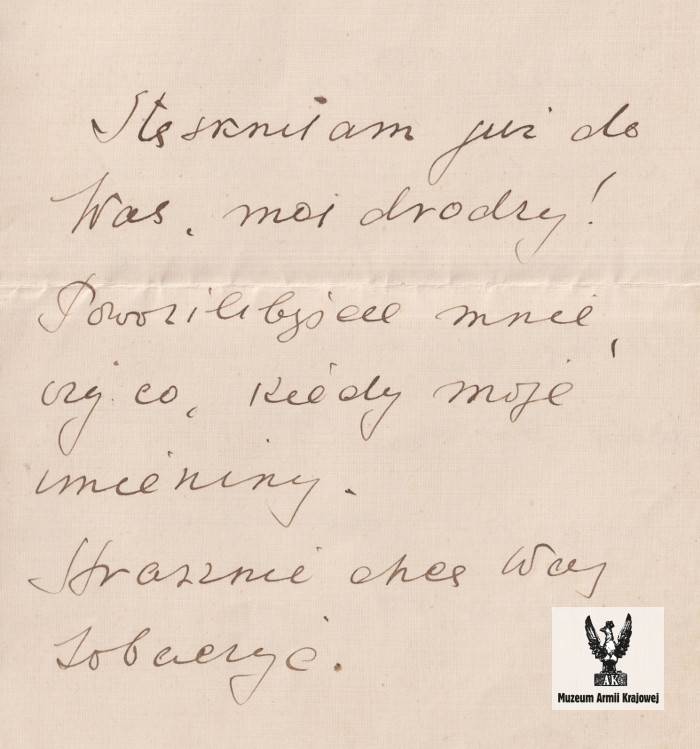 Stęskniłam już do
Was, moi drodzy!
Powozilibyście mnie,
czy co, kiedy moje
imieniny.
Strasznie chcę Was
zobaczyć.
AK
Muzeum Armii Krajowej